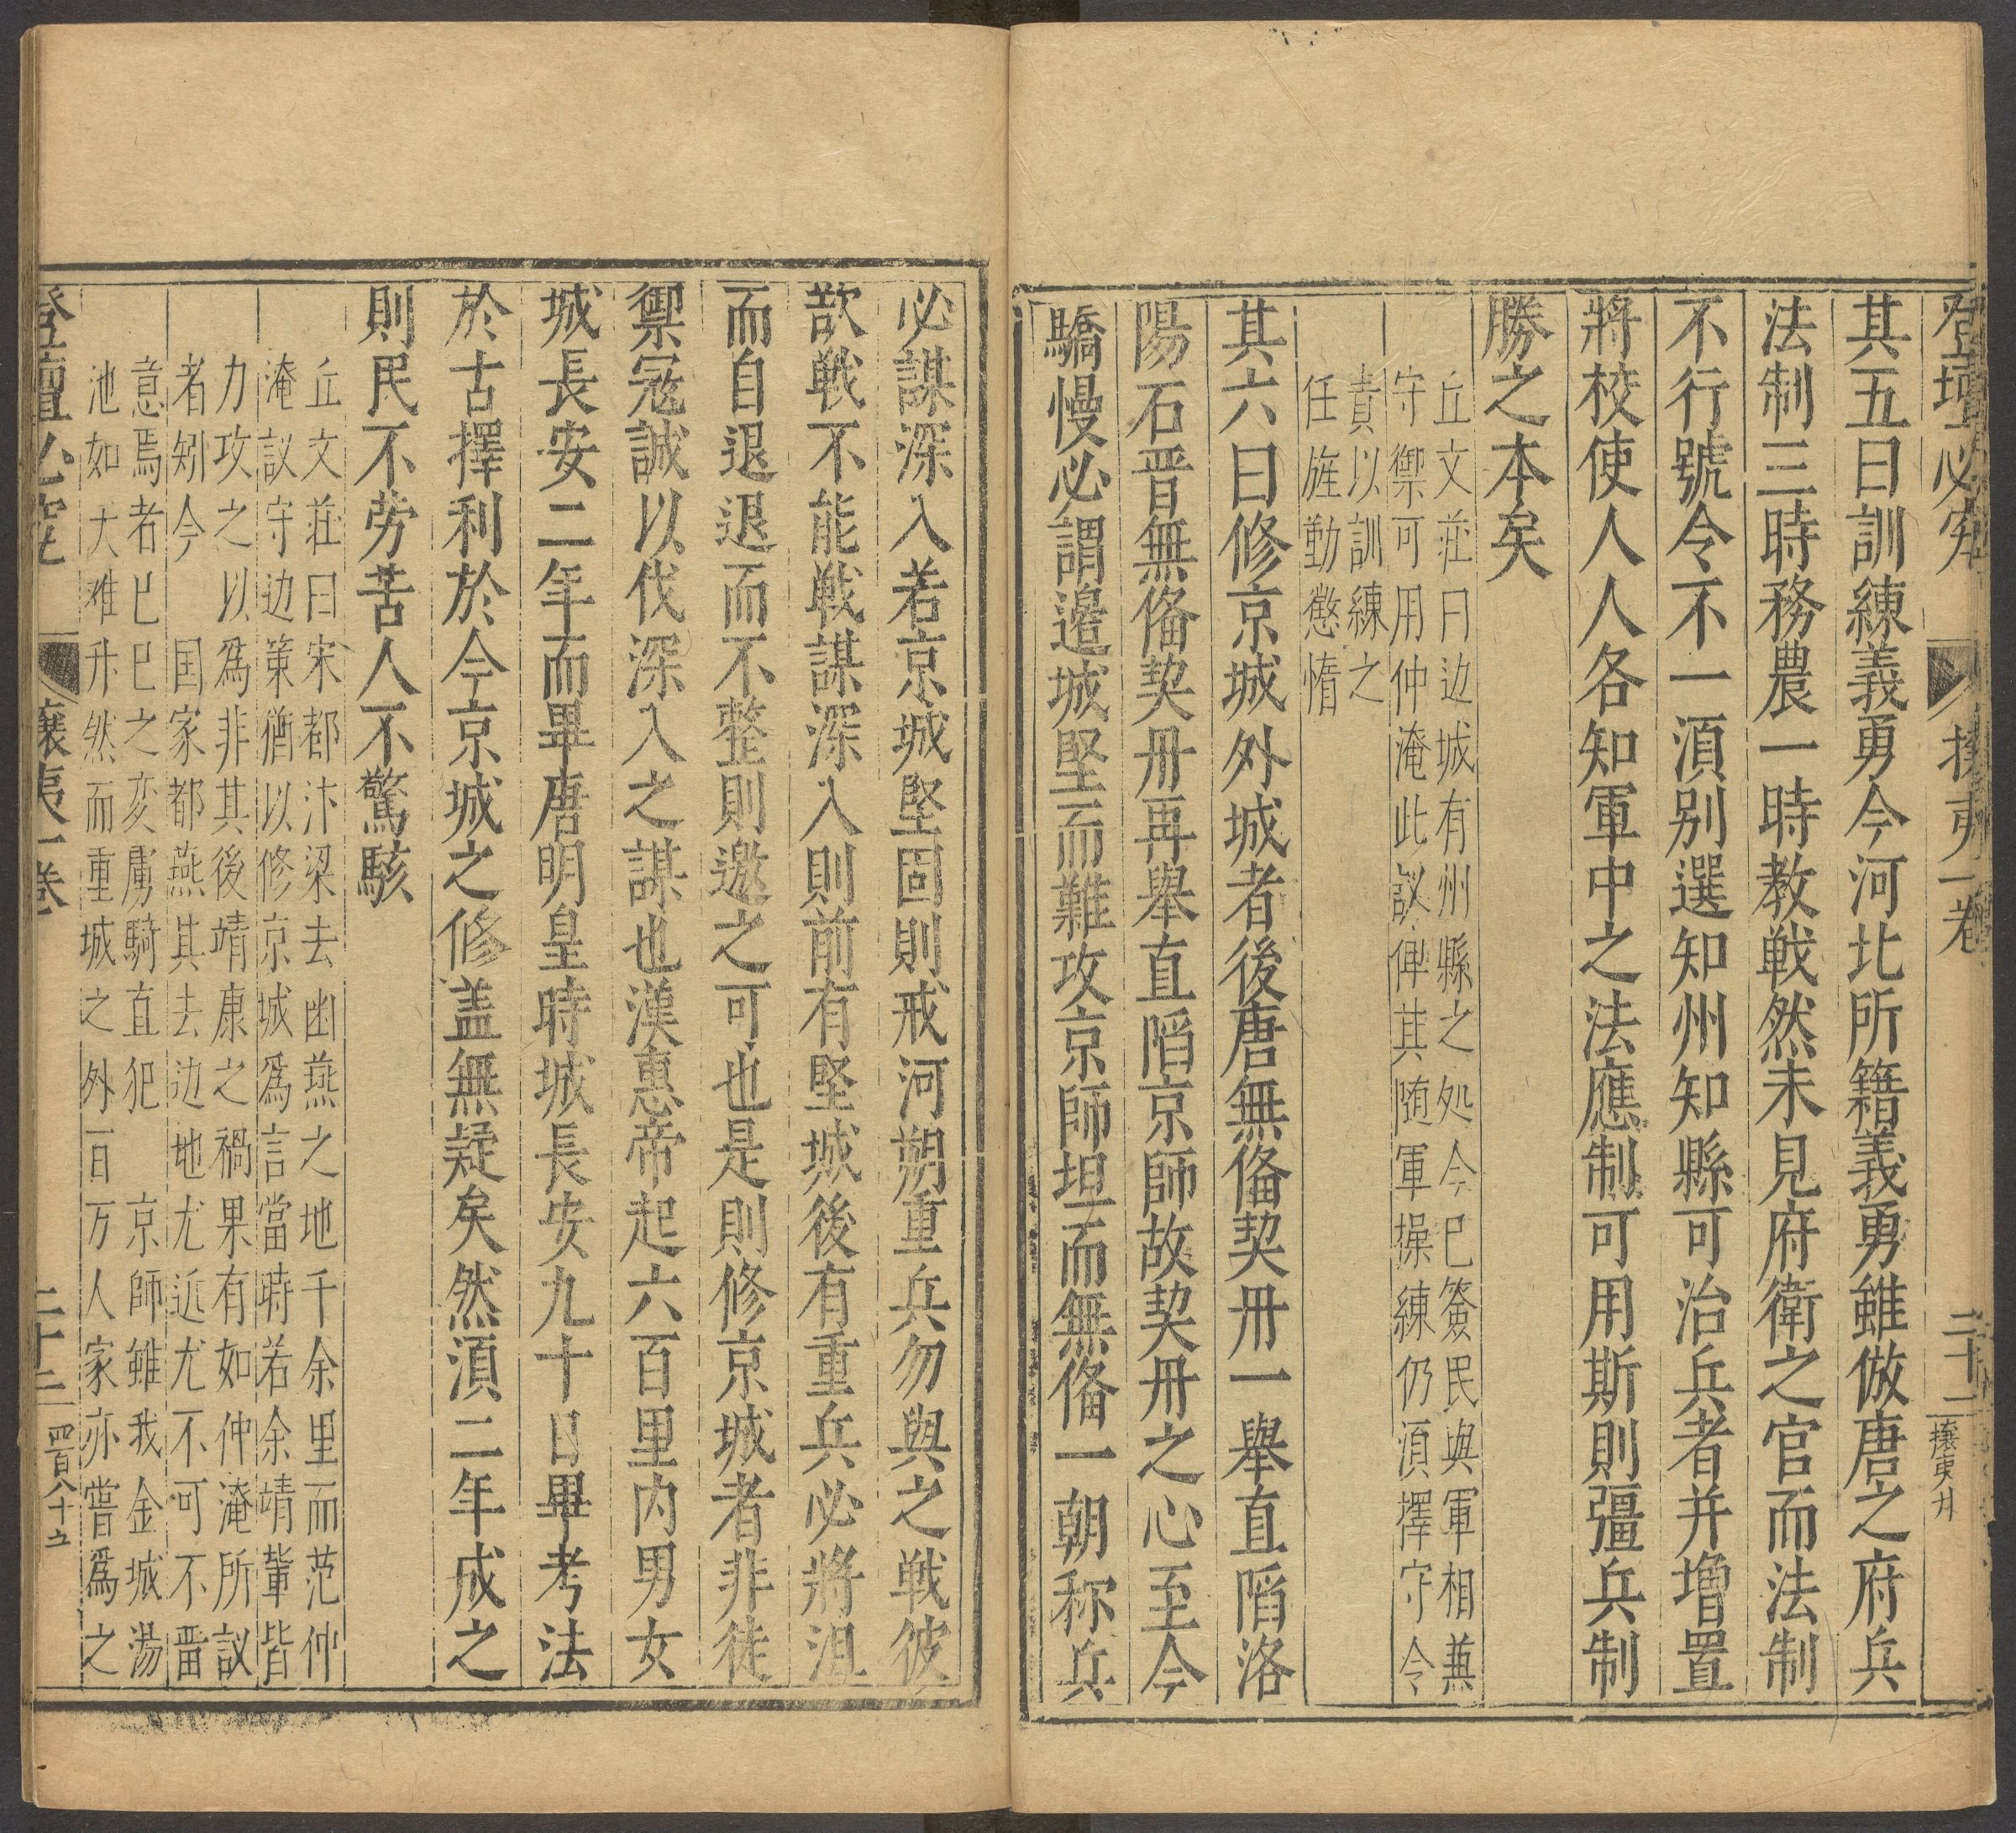 登壇必究 攘夷一卷 二十二 攘夷廾
其五曰訓練義勇今河北所籍義勇雖倣唐之府兵
法制三時務農一時教戦然未見府衛之官而法制
不行號令不一湏别選知州知縣可治兵者并增置
將校使人人各知軍中之法應制可用斯則彊兵制
勝之本矣
丘文莊曰边城有州縣之处今已簽民與軍相兼
守禦可用仲淹此議俾其随軍操練仍湏擇守令
責以訓練之
任旌勤懲惰
其六曰修京城外城者後唐無俻契丹一舉直䧟洛
陽石晋無俻契丹再舉直䧟京師故契丹之心至今
驕慢必謂邉城堅而難攻京師坦而無俻一朝称兵
必謀深入若京城堅固則戒河朔重兵勿與之戦彼
欲戦不能戦謀深入則前有堅城後有重兵必將沮
而自退退而不整則邀之可也是則修京城者非徒
禦冦誠以伐深入之謀也漢惠帝起六百里内男女
城長安二年而畢唐明皇時城長安九十日畢考法
於古擇利於今京城之修盖無疑矣然湏二年成之
則民不劳苦人不驚駭
丘文莊曰宋都汴梁去幽燕之地千余里而范仲
淹議守边策猶以修京城爲言當時若余靖輩皆
力攻之以爲非其後靖康之禍果有如仲淹所議
者矧今 国家都燕其去边地尤近尤不可不畱
意焉者已巳之変虜騎直犯 京師雖我金城湯
池如天难升然而重城之外百万人家亦嘗爲之
登壇必究 攘夷一卷 二十三 四百八十五